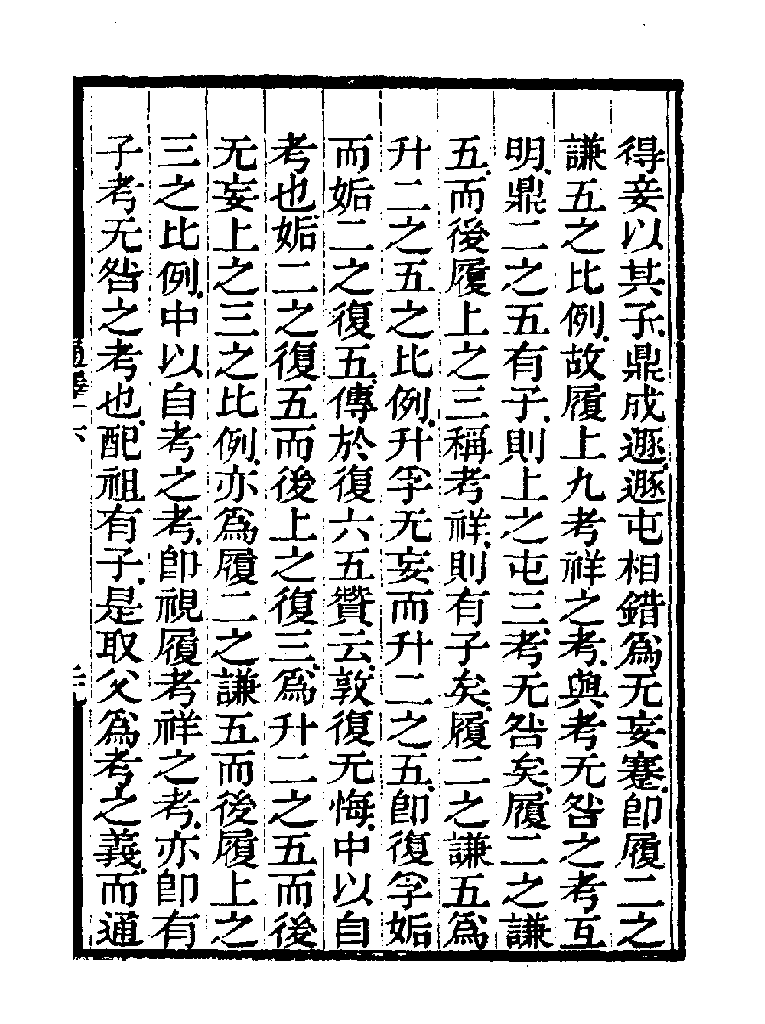 得妾以其子鼎成遯遯屯相錯爲无妄蹇卽履二之
謙五之比例故履上九考祥之考與考无咎之考互
明鼎二之五有子則上之屯三考无咎矣履二之謙
五而後履上之三稱考祥則有子矣履二之謙五爲
升二之五之比例升孚无妄而升二之五卽復孚姤
而姤二之復五傳於復六五贊云敦復无悔中以自
考也姤二之復五而後上之復三爲升二之五而後
无妄上之三之比例亦爲履二之謙五而後履上之
三之比例中以自考之考卽視履考祥之考亦卽有
子考无咎之考也配祖有子是取父爲考之義而通